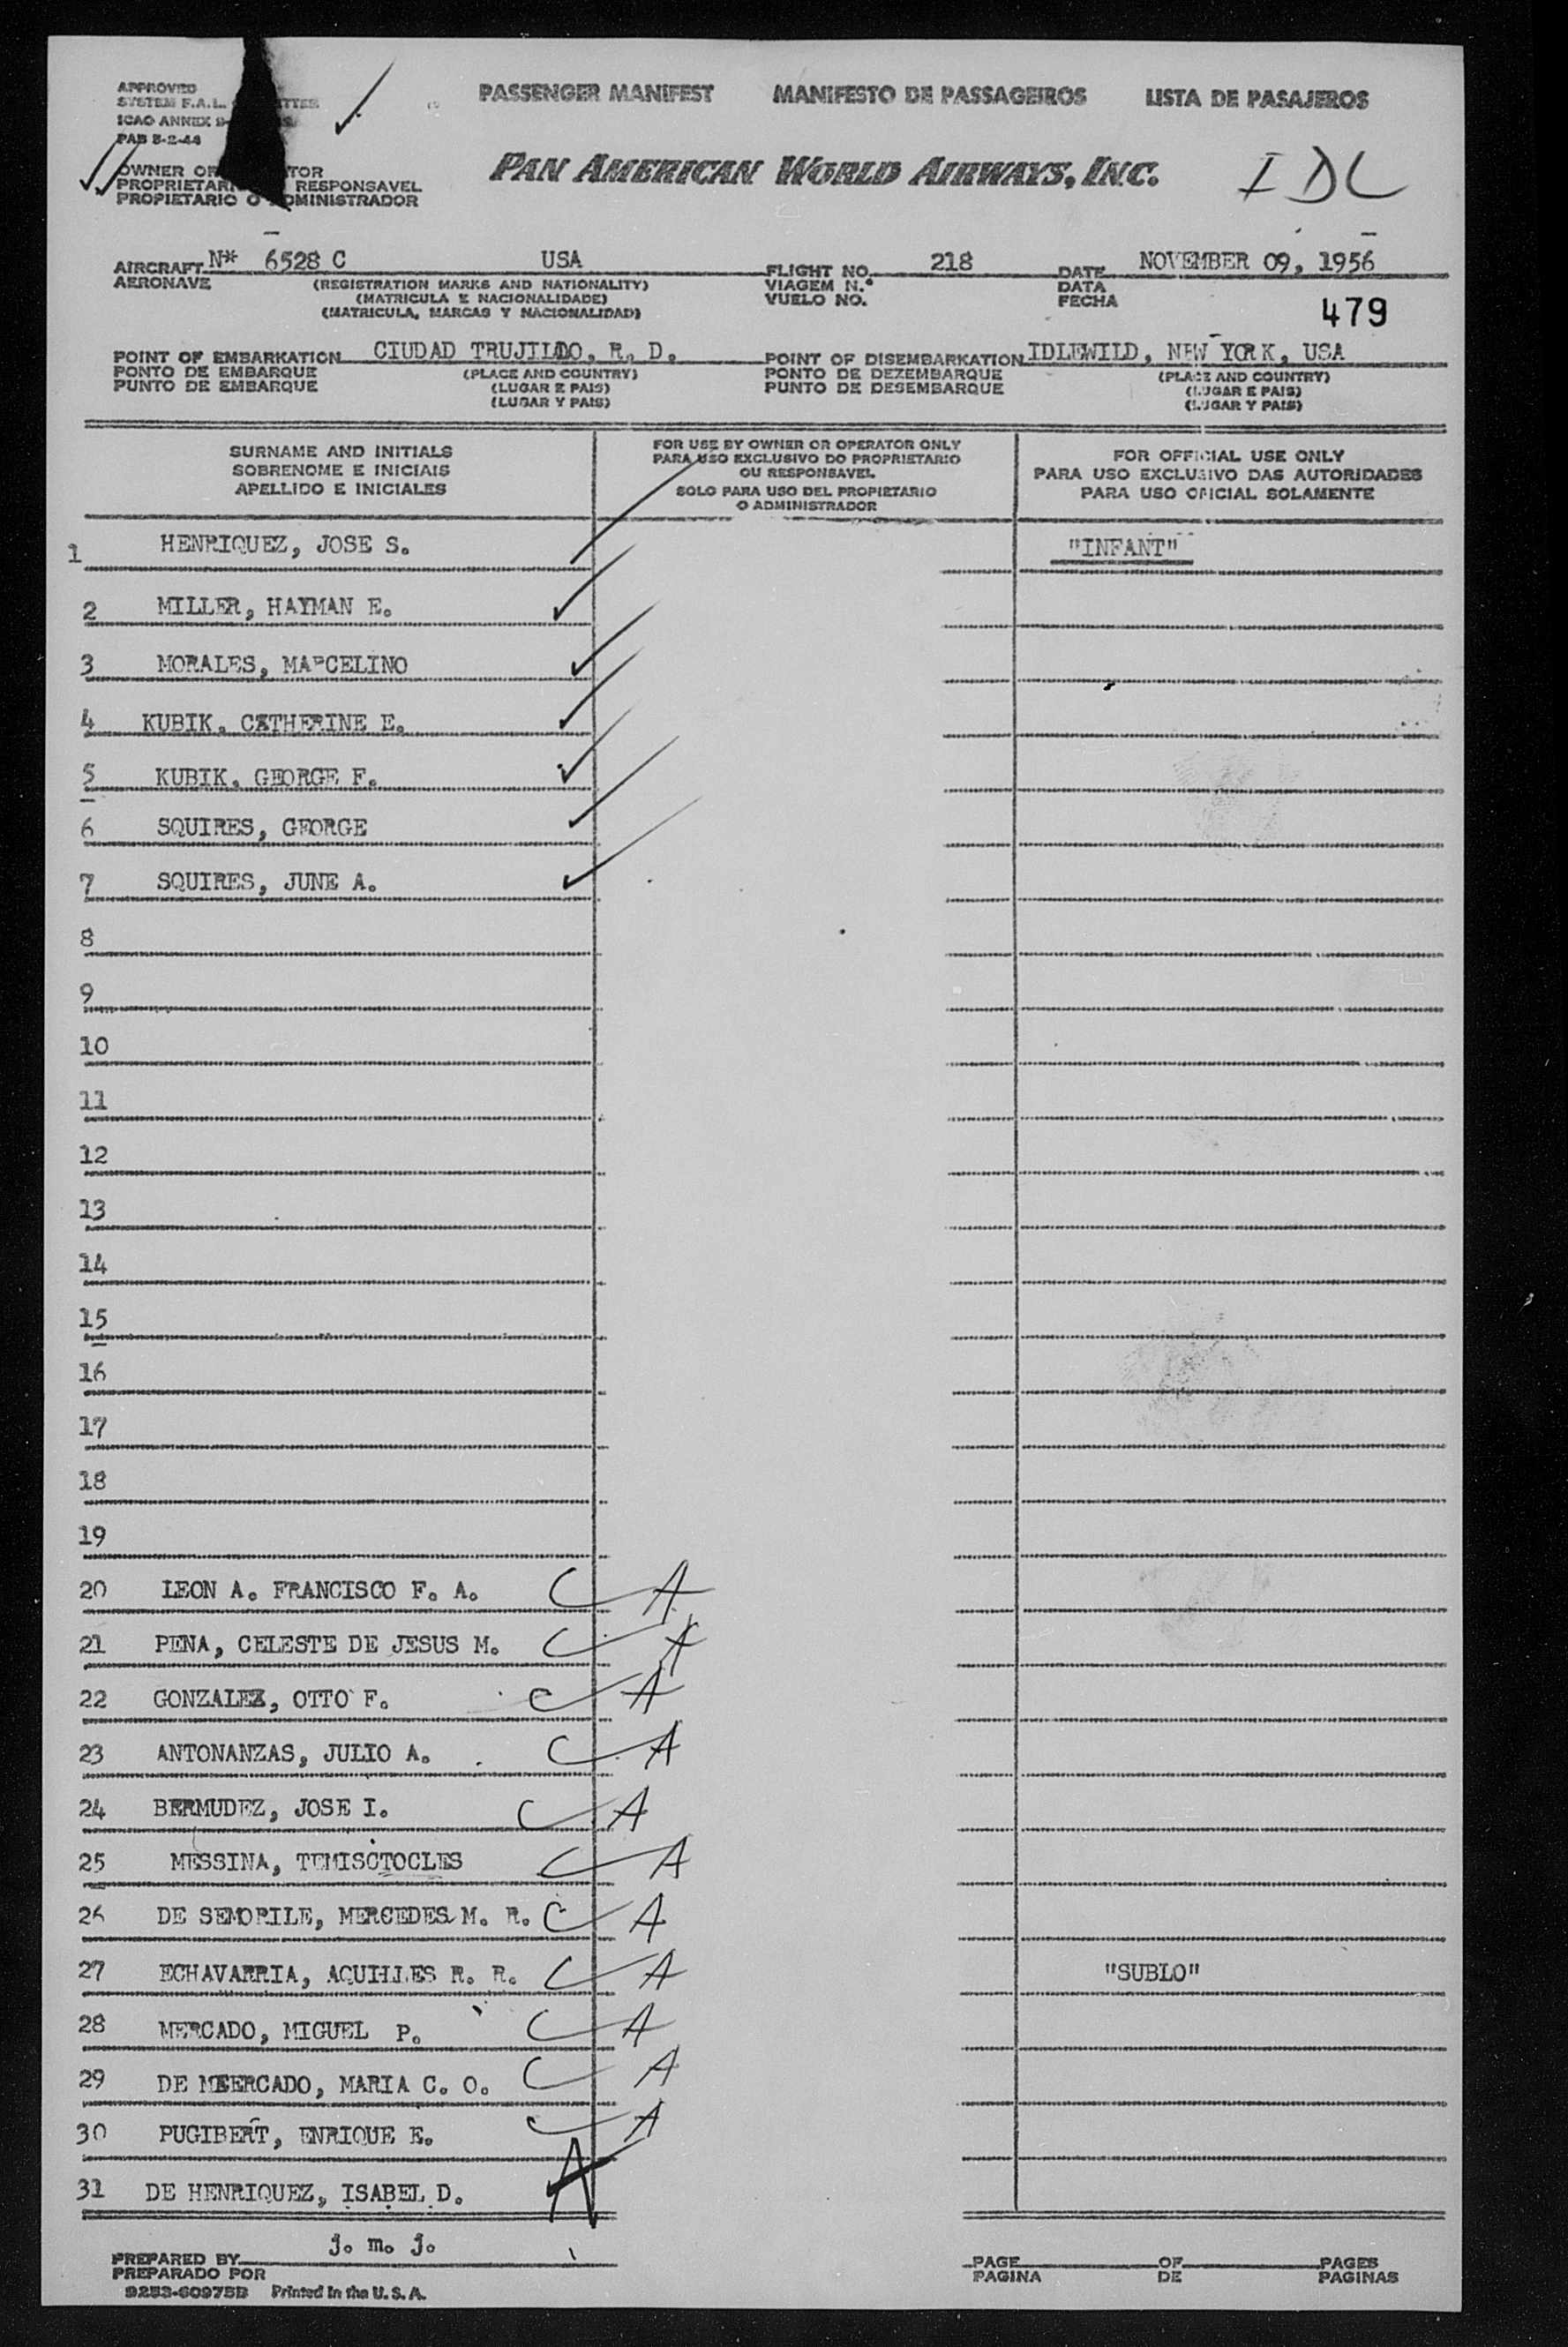 APPROVED
SYSTEM F.A.L.
ICAO ANNEX 9
PAB 5-2-44
PASSENGER MANIFEST MANIFESTO DE PASSAGEIROS LISTA DE PASAJEROS
OWNER OR
PROPRIETARIO RESPONSAVEL
PROPIETARIO O ADMINISTRADOR
PAN AMERICAN WORLD AIRWAYS, INC.
IDL
AIRCRAFT N* 6528 C USA FLIGHT NO. 218 DATE NOVEMBER 09, 1956
AERONAVE (REGISTRATION MARKS AND NATIONALITY) VIAGEM N.º DATA
(MATRICULA E NACIONALIDADE) VUELO NO. FECHA
(MATRICULA, MARCAS Y NACIONALIDAD)
479
POINT OF EMBARKATION CIUDAD TRUJILLO, R. D. POINT OF DISEMBARKATION IDLEWILD, NEW YORK, USA
PONTO DE EMBARQUE (PLACE AND COUNTRY) PONTO DE DEZEMBARQUE (PLACE AND COUNTRY)
PUNTO DE EMBARQUE (LUGAR E PAIS) PUNTO DE DESEMBARQUE (LUGAR E PAIS)
(LUGAR Y PAIS) (LUGAR Y PAIS)
SURNAME AND INITIALS
SOBRENOME E INICIAIS
APELLIDO E INICIALES
FOR USE BY OWNER OR OPERATOR ONLY
PARA USO EXCLUSIVO DO PROPRIETARIO
OU RESPONSAVEL
SOLO PARA USO DEL PROPIETARIO
O ADMINISTRADOR
FOR OFFICIAL USE ONLY
PARA USO EXCLUSIVO DAS AUTORIDADES
PARA USO OFICIAL SOLAMENTE
1 HENRIQUEZ, JOSE S. "INFANT"
2 MILLER, HAYMAN E.
3 MORALES, MARCELINO
4 KUBIK, CATHERINE E.
5 KUBIK, GEORGE F.
6 SQUIRES, GEORGE
7 SQUIRES, JUNE A.
8
9
10
11
12
13
14
15
16
17
18
19
20 LEON A. FRANCISCO F. A. C A
21 PENA, CELESTE DE JESUS M. C A
22 GONZALEZ, OTTO F. C A
23 ANTONANZAS, JULIO A. C A
24 BERMUDEZ, JOSE I. C A
25 MESSINA, TEMISCTOCLES C A
26 DE SEMORILE, MERCEDES M. R. C A
27 ECHAVARRIA, AQUILLES R. R. C A "SUBLO"
28 MERCADO, MIGUEL P. C A
29 DE MEERCADO, MARIA C. O. C A
30 PUGIBERT, ENRIQUE E. C A
31 DE HENRIQUEZ, ISABEL D. A
PREPARED BY j. m. j. PAGE OF PAGES
PREPARADO POR PAGINA DE PAGINAS
9253-60975B Printed in the U. S. A.